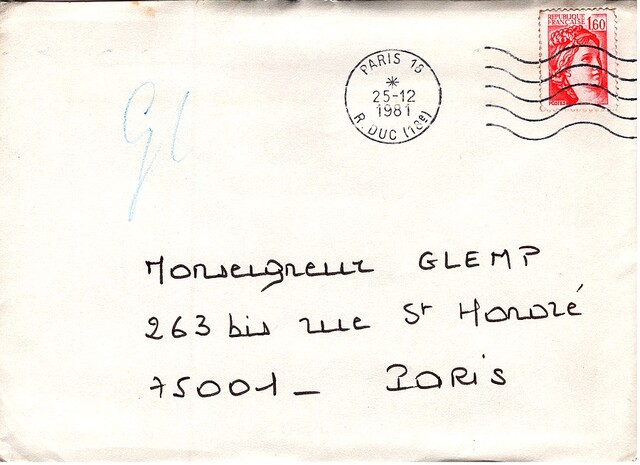 REPUBLIQUE
FRANCAISE 1,60
POSTES
PARIS 18
*
25-12
1981
R. DUC (18e)
Gl
Monseigneur GLEMP
263 bis rue St Honoré
75001 _ PARIS